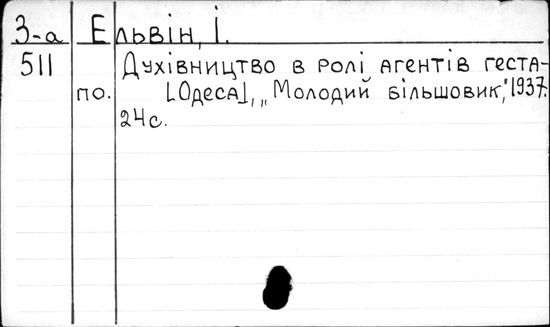 3-а Ельвін, І.
511 Духівництво в ролі агентів геста-
по. [Одеса], „Молодий більшовик", 1937.
24 с.